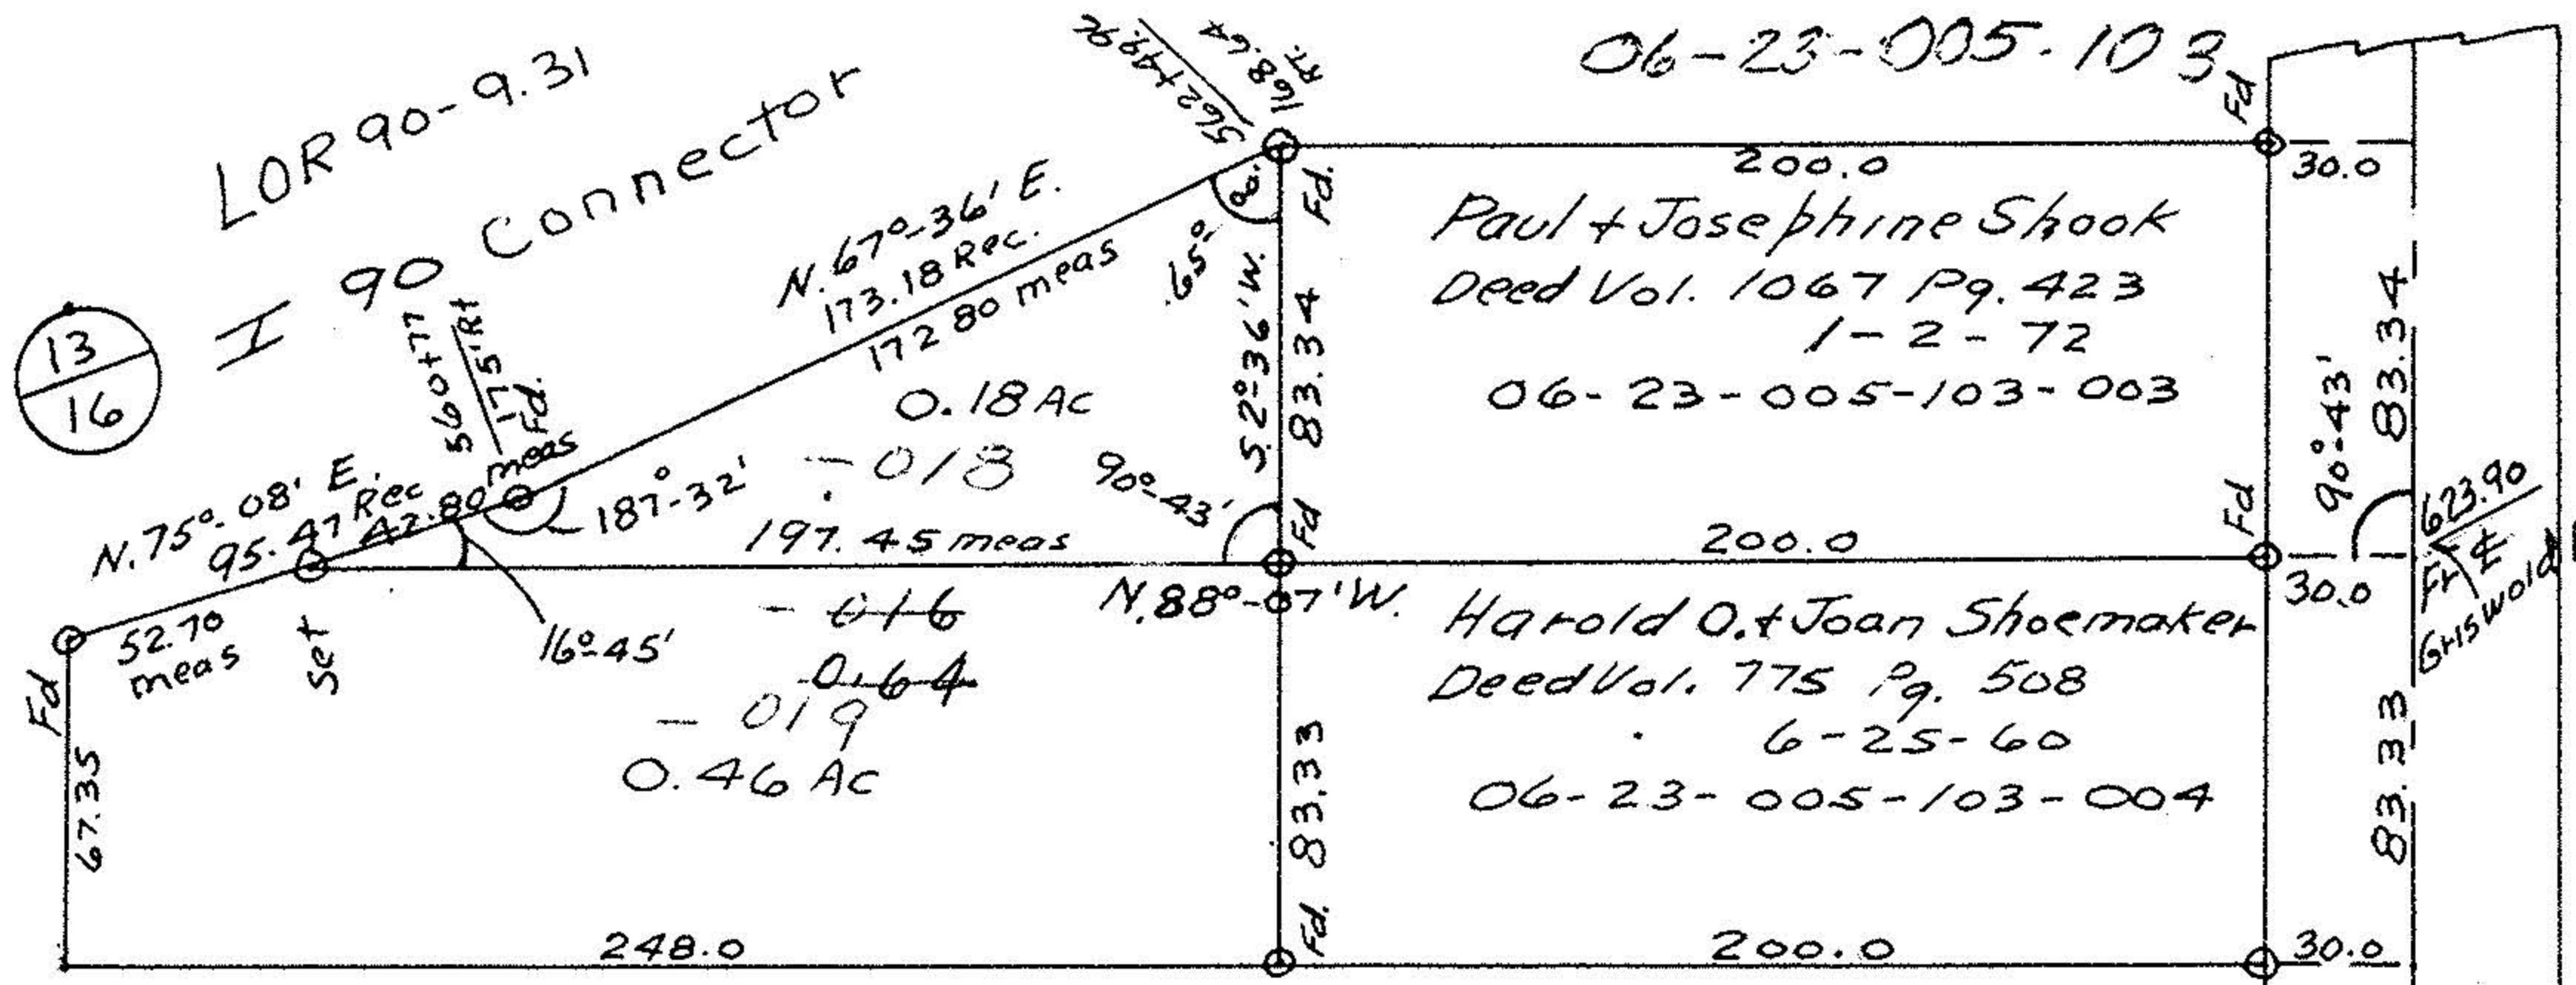 LOR 90-9.31
I 90 Connector
562+49.96
168.64
RT.
06-23-005-103
Fd
200.0
30.0
13
16
560+77
175' Rt
Fd.
N. 67°-36' E.
173.18 Rec.
172.80 meas
65°
Fd.
S.2°36'W.
83.34
Paul + Josephine Shook
Deed Vol. 1067 Pg. 423
1-2-72
06-23-005-103-003
90°-43'
83.34
0.18 Ac
-018
N. 75°-08' E.
95.47 Rec
42.80 meas
187°-32'
90°-43'
197.45 meas
Fd
200.0
Fd
30.0
623.90
Fr ⅊
Griswold
Fd
52.70
meas
Set
16°-45'
N. 88°-07' W.
-016
0.64
-019
0.46 Ac
Harold O. + Joan Shoemaker
Deed Vol. 775 Pg. 508
6-25-60
06-23-005-103-004
67.35
83.33
83.33
248.0
Fd.
200.0
30.0